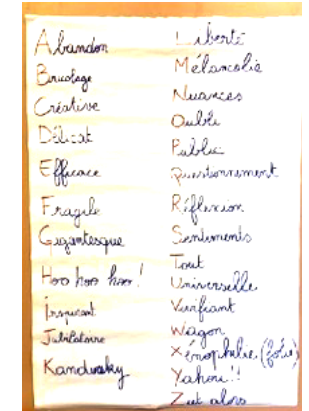 Abandon
Bricolage
Créative
Délicat
Efficace
Fragile
Gigantesque
Hoo hoo hoo!
Inspirant
Jubilatoire
Kandinsky
Liberté
Mélancolie
Nuances
Oubli
Public
Questionnement
Réflexion
Sentiments
Tout
Universelle
Vivifiant
Wagon
Xénophilie (folie)
Yahou!!
Zut alors